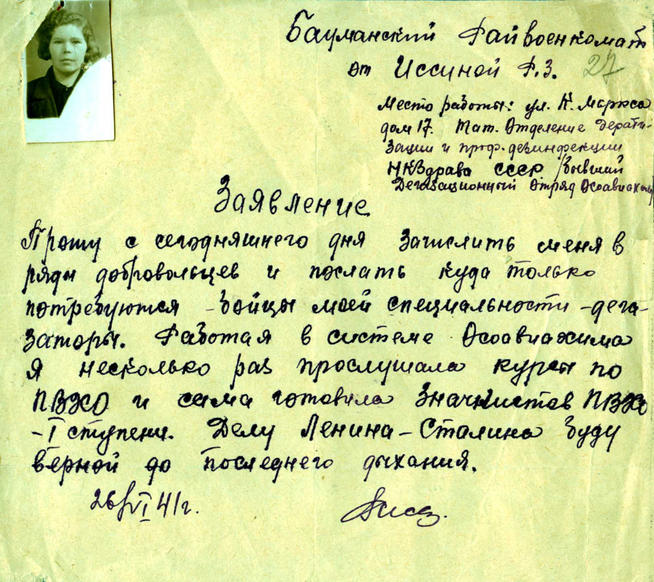 Бауманский Райвоенкомат
от Иссиной Ф.З. 27
Место работы: ул. К. Маркса
дом 17. Тат. Отделение дерати-
зации и проф. дезинфекции
НКЗдрава СССР /бывший
Дегазационный Отряд Осоавиахим/
Заявление
Прошу с сегодняшнего дня зачислить меня в
ряды добровольцев и послать куда только
потребуются - бойцы моей специальности - дега-
заторы. Работая в системе Осоавиахима
я несколько раз прослушала курсы по
ПВХО и сама готовила значкистов ПВХО
- I ступени. Делу Ленина - Сталина буду
верной до последнего дыхания.
26/VI 41 г.